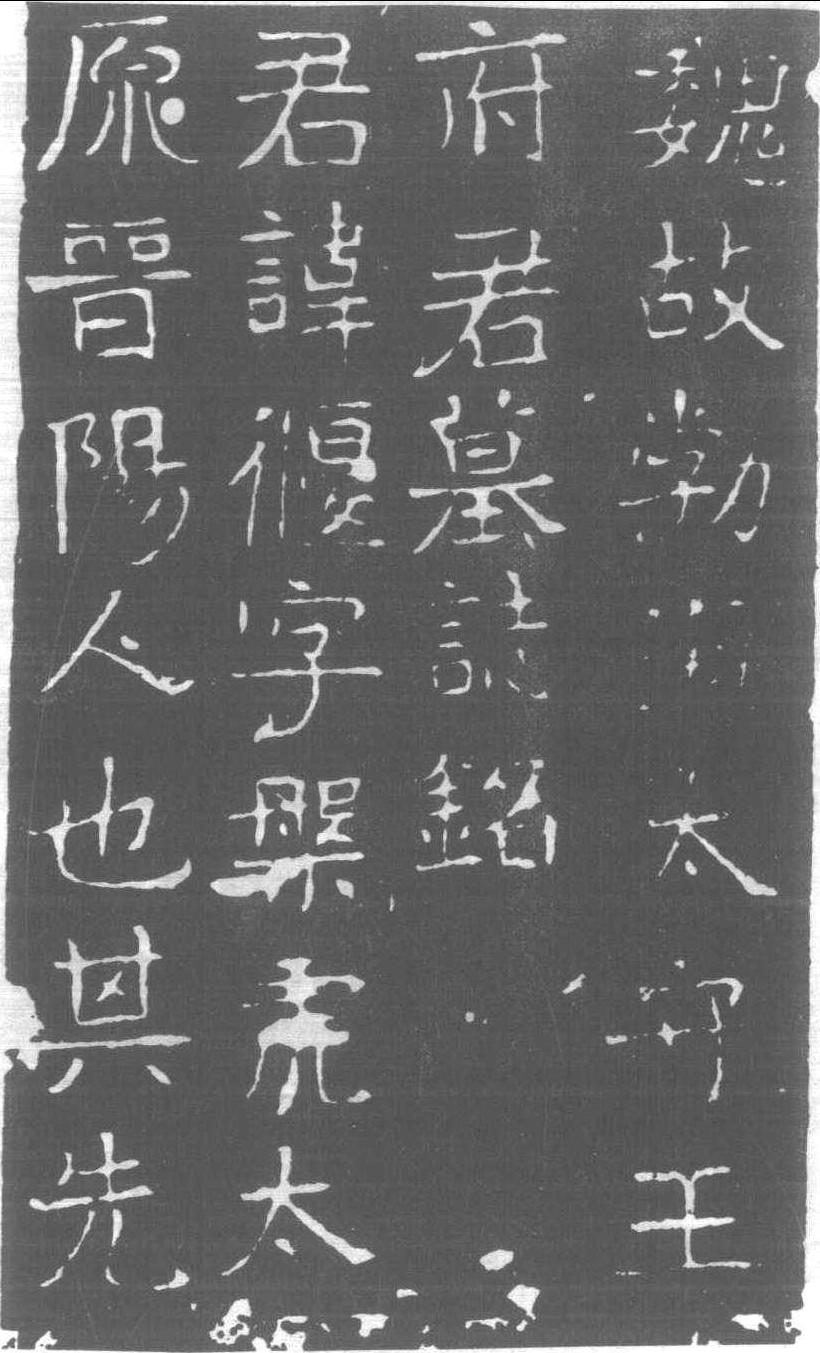 魏故勃海太守王
府君墓誌銘
君諱偃字槃虎太
原晉陽人也其先